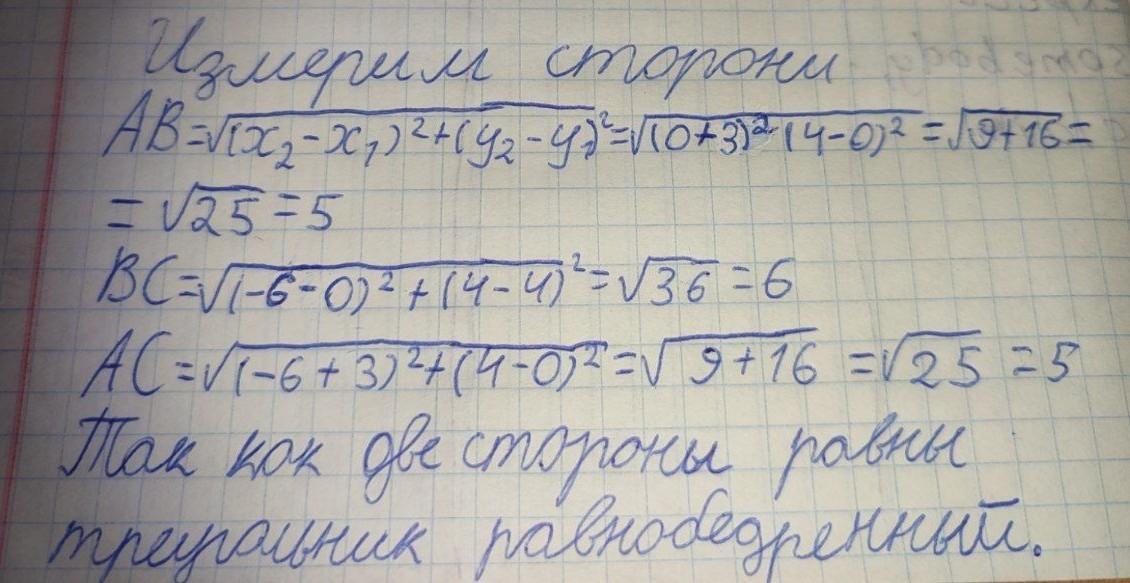 Измерим сторони
AB=√(x₂-x₁)²+(y₂-y₁)²=√(0+3)²(4-0)²=√9+16=
=√25=5
BC=√(-6-0)²+(4-4)²=√36=6
AC=√(-6+3)²+(4-0)²=√9+16=√25=5
Так как две стороны равны
треугольник равнобедренный.